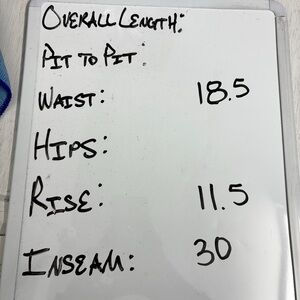 OVERALL LENGTH:
PIT TO PIT:
WAIST: 18.5
HIPS:
RISE: 11.5
INSEAM: 30